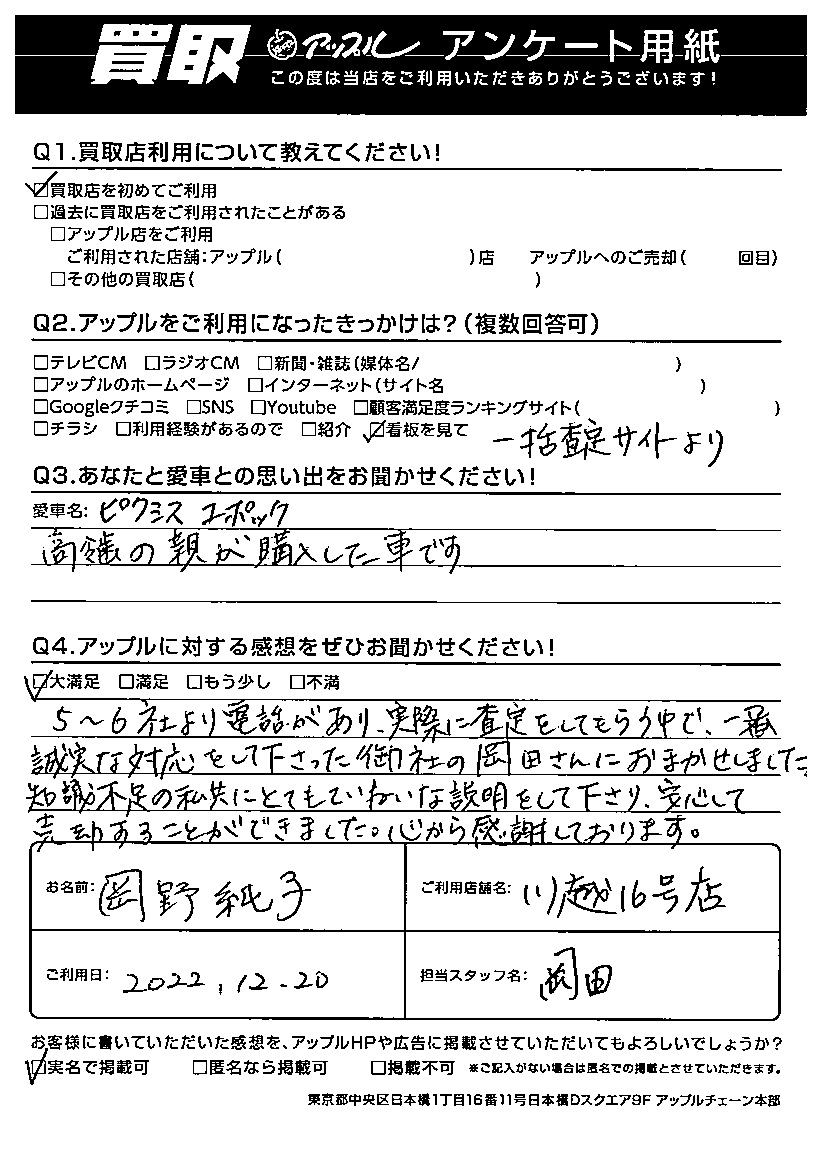 買取 アップル アンケート用紙
この度は当店をご利用いただきありがとうございます!
Q1.買取店利用について教えてください!
☑買取店を初めてご利用
□過去に買取店をご利用されたことがある
□アップル店をご利用
ご利用された店舗:アップル( )店 アップルへのご売却( 回目)
□その他の買取店( )
Q2.アップルをご利用になったきっかけは?(複数回答可)
□テレビCM □ラジオCM □新聞・雑誌(媒体名/ )
□アップルのホームページ □インターネット(サイト名 )
□Googleクチコミ □SNS □Youtube □顧客満足度ランキングサイト( )
□チラシ □利用経験があるので □紹介 ☑看板を見て 一括査定サイトより
Q3.あなたと愛車との思い出をお聞かせください!
愛車名: ピクシス エポック
高齢の親が購入した車です
Q4.アップルに対する感想をぜひお聞かせください!
☑大満足 □満足 □もう少し □不満
5~6社より電話があり、実際に査定をしてもらう中で、一番
誠実な対応をして下さった御社の岡田さんにおまかせしました。
知識不足の私共にとてもていねいな説明をして下さり、安心して
売却することができました。心から感謝しております。
お名前: 岡野純子 ご利用店舗名: 川越16号店
ご利用日: 2022.12.20 担当スタッフ名: 岡田
お客様に書いていただいた感想を、アップルHPや広告に掲載させていただいてもよろしいでしょうか?
☑実名で掲載可 □匿名なら掲載可 □掲載不可 ※ご記入がない場合は匿名での掲載とさせていただきます。
東京都中央区日本橋1丁目16番11号日本橋Dスクエア9F アップルチェーン本部